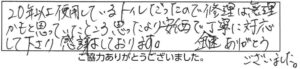 20年以上使用しているトイレだったので修理は無理
かもと思っていたところ思ったより安価で丁寧に対応
して下さり感謝しております。　　ありがとう
ございました。
ご協力ありがとうございました。